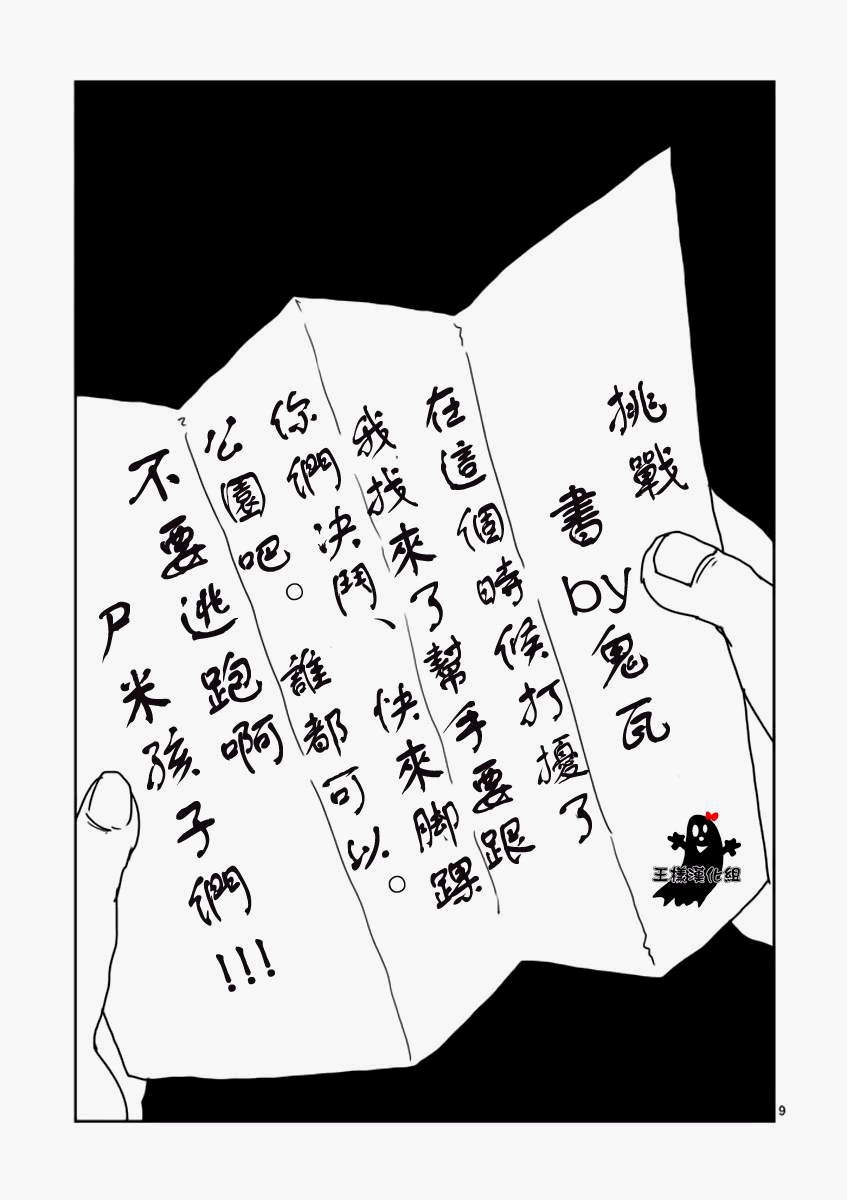 挑戰
書by鬼瓦
在這個時候打擾了
我找來了幫手要跟
你們決鬥、快來腳踝
公園吧。誰都可以。
不要逃跑啊
尸米孩子們!!!
王様漢化組
9